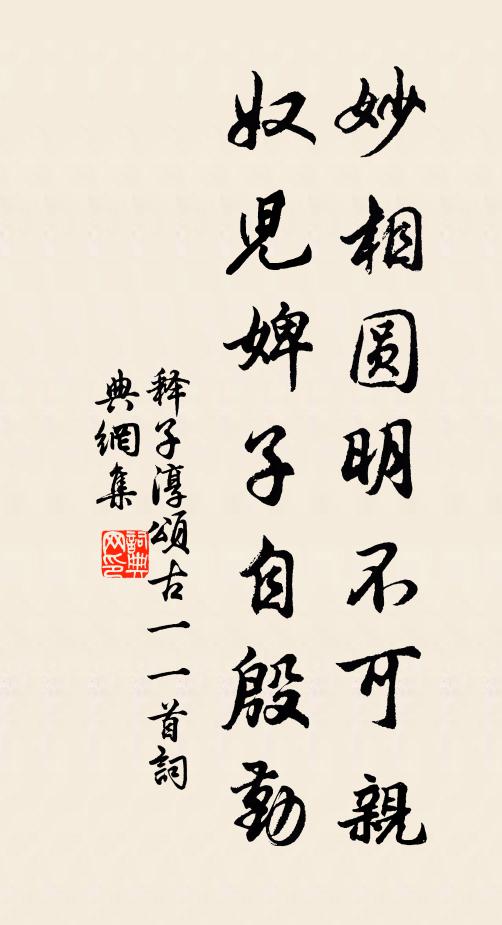 妙相圆明不可親
奴児婢子自殷勤
释子淳頌古一一首詞
典網集
詞典网印